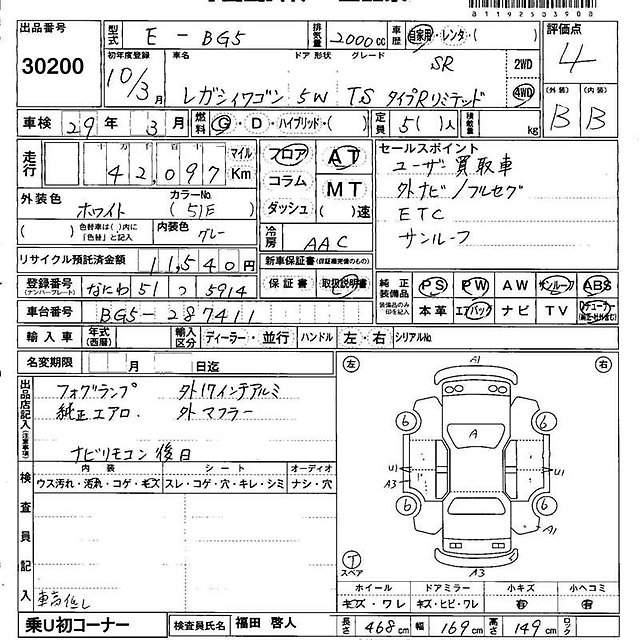 811925039000
出品番号 30200
型式 E - BG5 排気量 2000cc 車歴 自家用・レンタ・( ) 評価点 4
初年度登録 10/3月 車名 レガシィワゴン ドア 形状 5W グレード TS タイプRリミテッド SR 2WD 4WD
(外装) B (内装) B
車検 29年 3月 燃料 G・D・ハイブリッド・( ) 定員 5( )人 積載量 kg
走行 十万千百十一 42,097 マイル Km
フロア AT
コラム MT
ダッシュ ( )速
セールスポイント
ユーザー買取車
外ナビ/フルセグ
ETC
サンルーフ
外装色 ホワイト カラーNo. (51E)
( ) 色替車は( )内に「色替」と記入 内装色 グレー
冷房 AAC
リサイクル預託済金額 11,540円
新車保証書(保証継続完備のもの)
保証書・取扱説明書
登録番号(ナンバープレート) なにわ 51 つ 5914
純正装備品 PS PW AW サンルーフ ABS
装備品のみ印を記入 本革 エアバック ナビ TV
車台番号 BG5-287411
輸入車 年式(西暦) 輸入区分 ディーラー・並行 ハンドル 左・右 シリアルNo.
名変期限 月 日迄
出品店記入(注意事項)
フォグランプ 外17インチアルミ
純正エアロ. 外マフラー
ナビリモコン後日
検査員記入
内装 シート オーディオ
ウス汚れ・汚れ・コゲ・キズ スレ・コゲ・穴・キレ・シミ ナシ・穴
車高低し
左 右
A1
6 6
A
U1 U1
A3
6 6
A1
T
スペア
A3
ホイール ドアミラー 小キズ 小ヘコミ
キズ・ワレ キズ・ヒビ・ワレ 有 有
乗U初コーナー 検査員氏名 福田 啓人 長さ 468cm 幅 169cm 高さ 149cm ロック